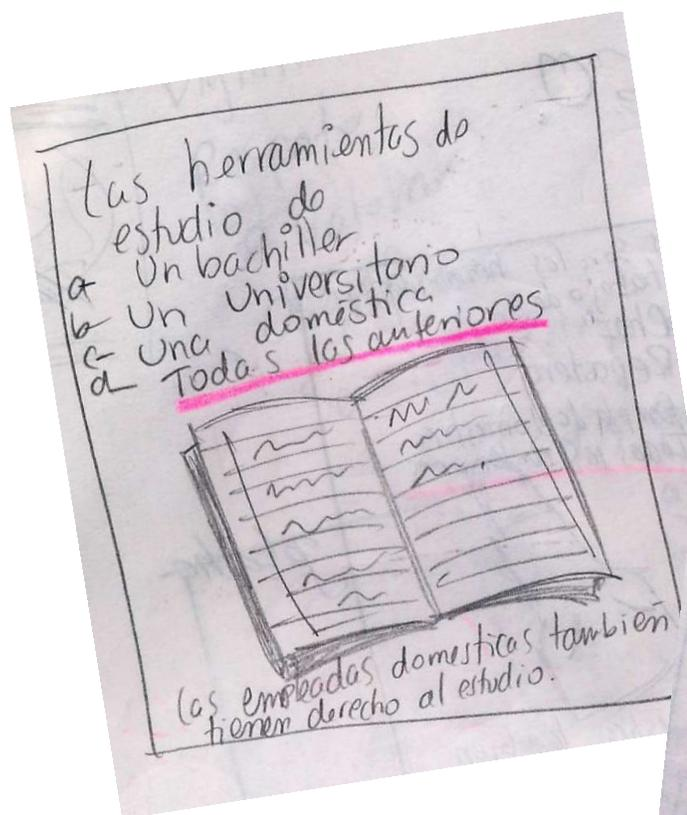 Las herramientas de
estudio de
a- Un bachiller
b- Un Universitario
c- Una doméstica
d- Todas las anteriores
Las empleadas domesticas también
tienen derecho al estudio.